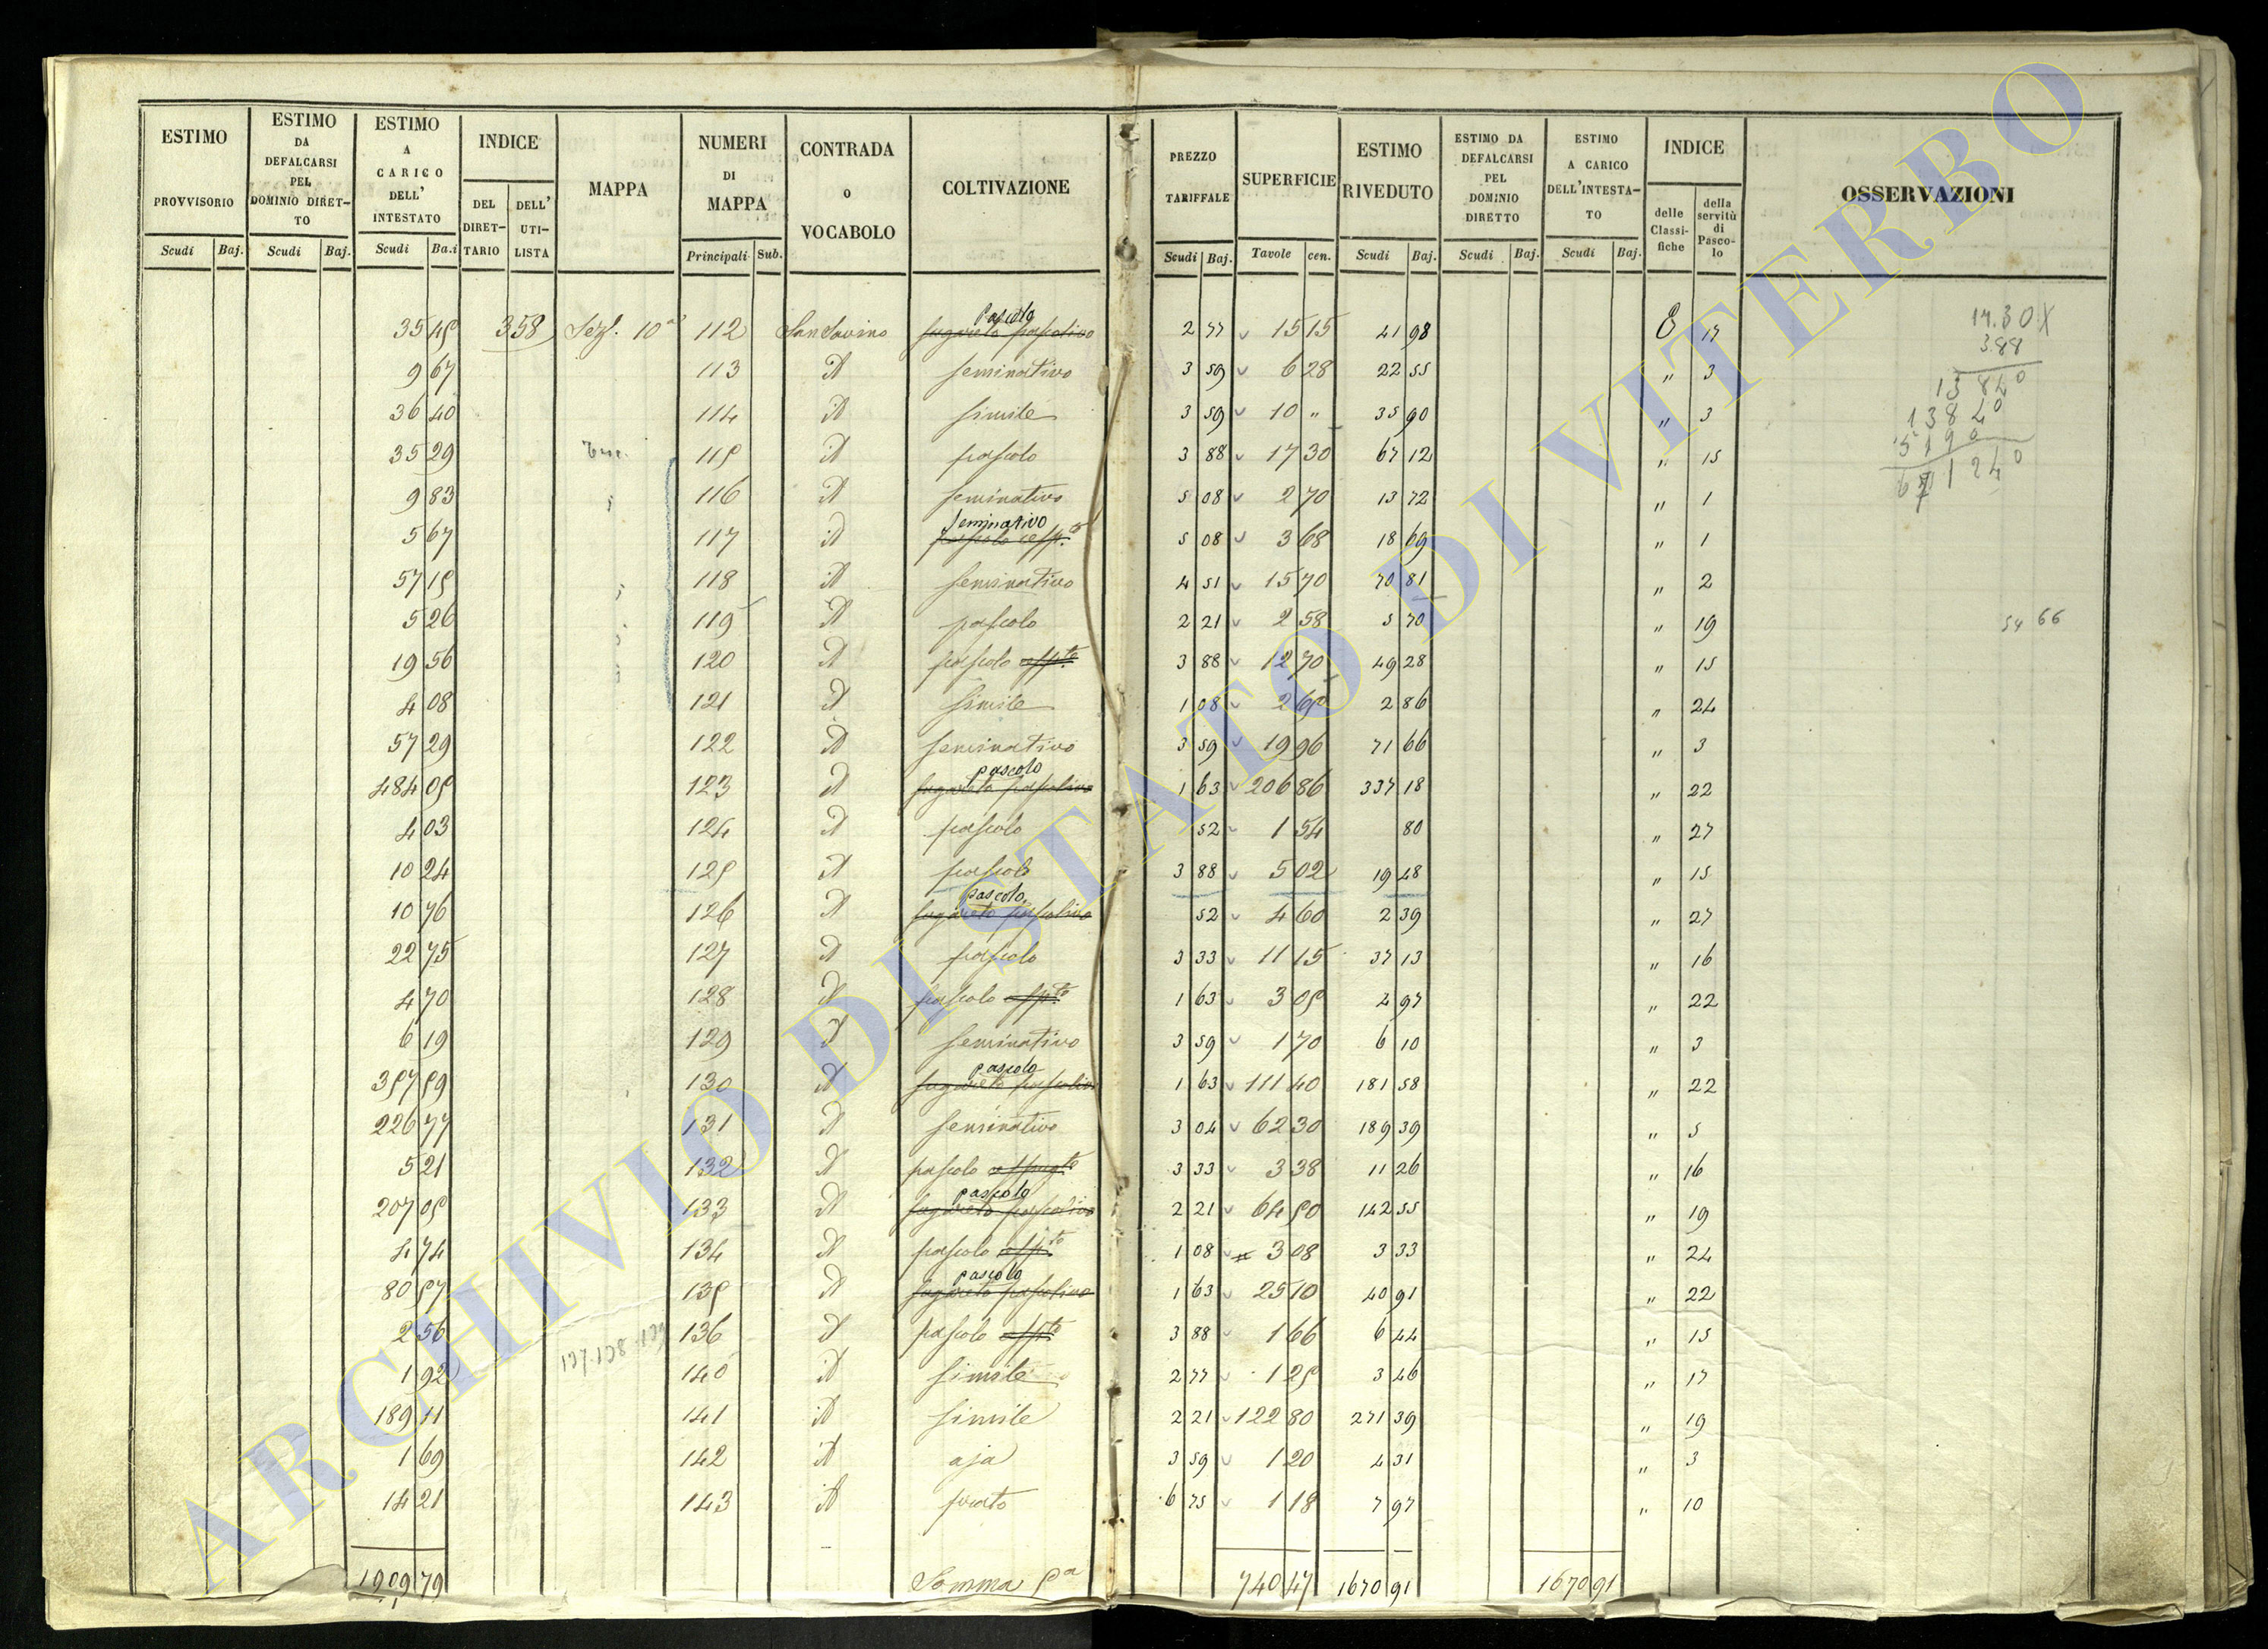 ESTIMO PROVVISORIO Scudi Baj.
ESTIMO DA DEFALCARSI PEL DOMINIO DIRET-TO Scudi Baj.
ESTIMO A CARICO DELL' INTESTATO Scudi Ba.i
INDICE DEL DIRET-TARIO DELL' UTI-LISTA
MAPPA
NUMERI DI MAPPA Principali Sub.
CONTRADA o VOCABOLO
COLTIVAZIONE
PREZZO TARIFFALE Scudi Baj.
SUPERFICIE Tavole cen.
ESTIMO RIVEDUTO Scudi Baj.
ESTIMO DA DEFALCARSI PEL DOMINIO DIRETTO Scudi Baj.
ESTIMO A CARICO DELL'INTESTA-TO Scudi Baj.
INDICE delle Classi-fiche della servitù di Pasco-lo
OSSERVAZIONI
35 45 358 Sez. 10a 112 San Savino pascolo 2 77 15 15 41 98 E 17
9 67 113 id seminativo 3 59 6 28 22 55 " 3
36 40 114 id simile 3 59 10 " 35 90 " 3
35 29 115 id pascolo 3 88 17 30 67 12 " 15
9 83 116 id seminativo 5 08 2 70 13 72 " 1
5 67 117 id seminativo 5 08 3 68 18 69 " 1
57 15 118 id seminativo 4 51 15 70 70 81 " 2
5 26 119 id pascolo 2 21 2 58 5 70 " 19
19 56 120 id pascolo 3 88 12 70 49 28 " 15
4 08 121 id simile 1 08 2 65 2 86 " 24
57 29 122 id seminativo 3 59 19 96 71 66 " 3
484 05 123 id pascolo 1 63 206 86 337 18 " 22
4 03 124 id pascolo 52 1 54 80 " 27
10 24 125 id pascolo 3 88 5 02 19 48 " 15
10 76 126 id pascolo 52 4 60 2 39 " 27
22 75 127 id pascolo 3 33 11 15 37 13 " 16
4 70 128 id pascolo 1 63 3 05 4 97 " 22
6 19 129 id seminativo 3 59 1 70 6 10 " 3
357 59 130 id pascolo 1 63 111 40 181 58 " 22
226 77 131 id seminativo 3 04 62 30 189 39 " 5
5 21 132 id pascolo 3 33 3 38 11 26 " 16
207 05 133 id pascolo 2 21 64 50 142 55 " 19
4 74 134 id pascolo 1 08 3 08 3 33 " 24
80 57 135 id pascolo 1 63 25 10 40 91 " 22
2 56 136 id pascolo 3 88 1 66 6 44 " 15
1 92 140 id simile 2 77 1 25 3 46 " 17
189 11 141 id simile 2 21 122 80 271 39 " 19
1 69 142 id aja 3 59 1 20 4 31 " 3
14 21 143 id prato 6 75 1 18 7 97 " 10
1909 79 Somma Pa 740 47 1670 91 1670 91
17.30 X
3.88
13840
13840
5190
671240
54 66
ARCHIVIO DI STATO DI VITERBO